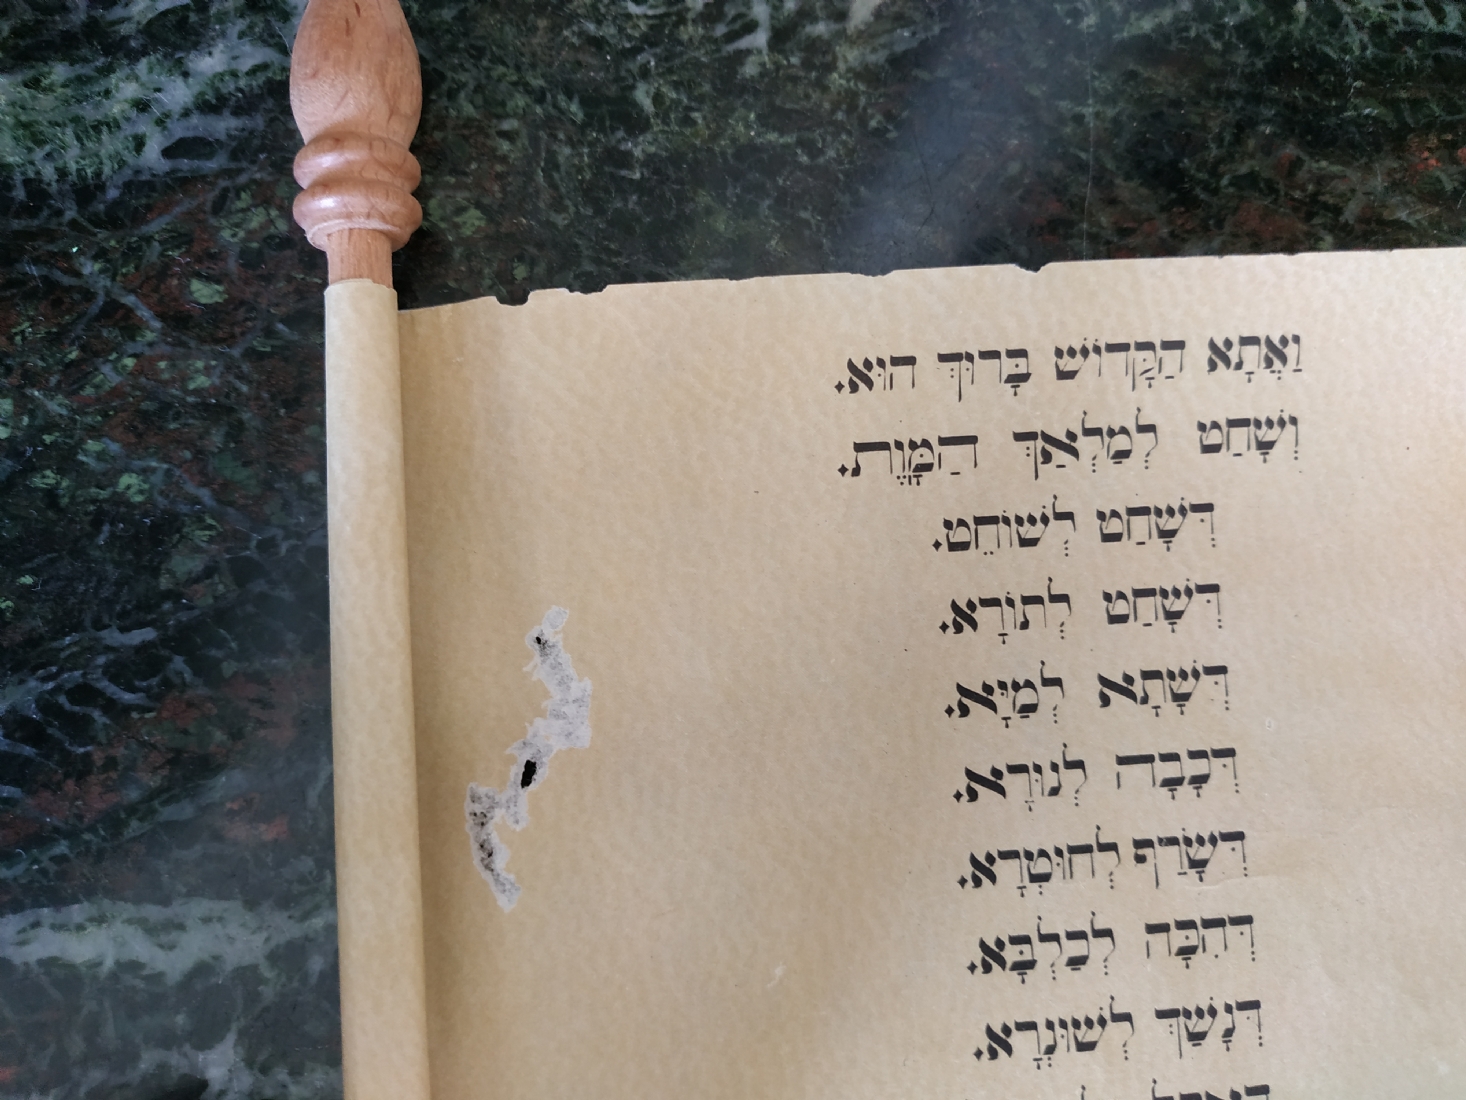 וַאֲתָא הַקָּדוֹשׁ בָּרוּךְ הוּא.
וְשָׁחַט לְמַלְאַךְ הַמָּוֶת.
דְּשָׁחַט לְשׁוֹחֵט.
דְּשָׁחַט לְתוֹרָא.
דְּשָׁתָא לְמַיָּא.
דְּכָבָה לְנוּרָא.
דְּשָׂרַף לְחוּטְרָא.
דְּהִכָּה לְכַלְבָּא.
דְּנָשַׁךְ לְשׁוּנְרָא.